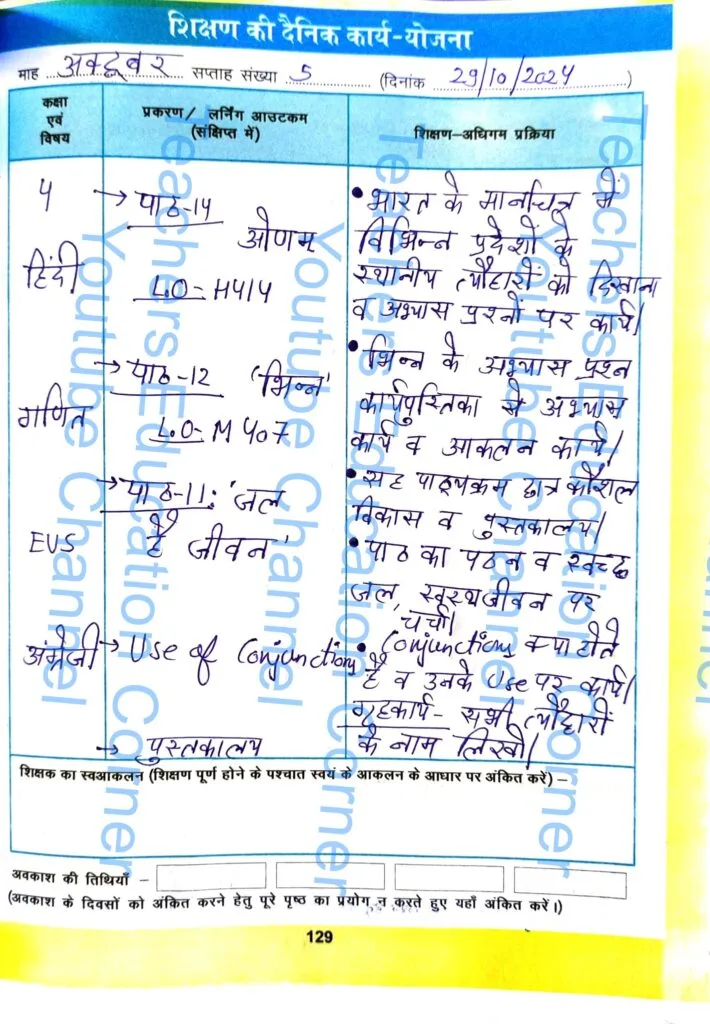 शिक्षण की दैनिक कार्य-योजना
माह अक्टूबर सप्ताह संख्या 5 (दिनांक 29/10/2024)
कक्षा एवं विषय
प्रकरण/ लर्निंग आउटकम (संक्षिप्त में)
शिक्षण-अधिगम प्रक्रिया
4
हिंदी
→ पाठ-14
ओणम
L.O- H414
• भारत के मानचित्र में
विभिन्न प्रदेशों के
स्थानीय त्यौहारों को दिखाना
व अभ्यास प्रश्नों पर कार्य।
गणित
→ पाठ-12 'भिन्न'
L.O- M407
• भिन्न के अभ्यास प्रश्न
कार्यपुस्तिका से अभ्यास
कार्य व आकलन कार्य।
• सह पाठ्यक्रम छात्र कौशल
विकास व पुस्तकालय।
EVS
→ पाठ-11: 'जल
ही है जीवन'
• पाठ का पठन व स्वच्छ
जल, स्वस्थ जीवन पर
चर्चा।
अंग्रेजी
→ Use of Conjunction
• Conjunctions क्या होते
है व उनके Use पर कार्य।
गृहकार्य - सभी त्यौहारों
के नाम लिखो।
→ पुस्तकालय
शिक्षक का स्वआकलन (शिक्षण पूर्ण होने के पश्चात स्वयं के आकलन के आधार पर अंकित करें) –
अवकाश की तिथियाँ –
(अवकाश के दिवसों को अंकित करने हेतु पूरे पृष्ठ का प्रयोग न करते हुए यहाँ अंकित करें।)
129
Teachers Education Corner
Youtube Channel
Teachers Education Corner
Youtube Channel
Teachers Education Corner
Youtube Channel